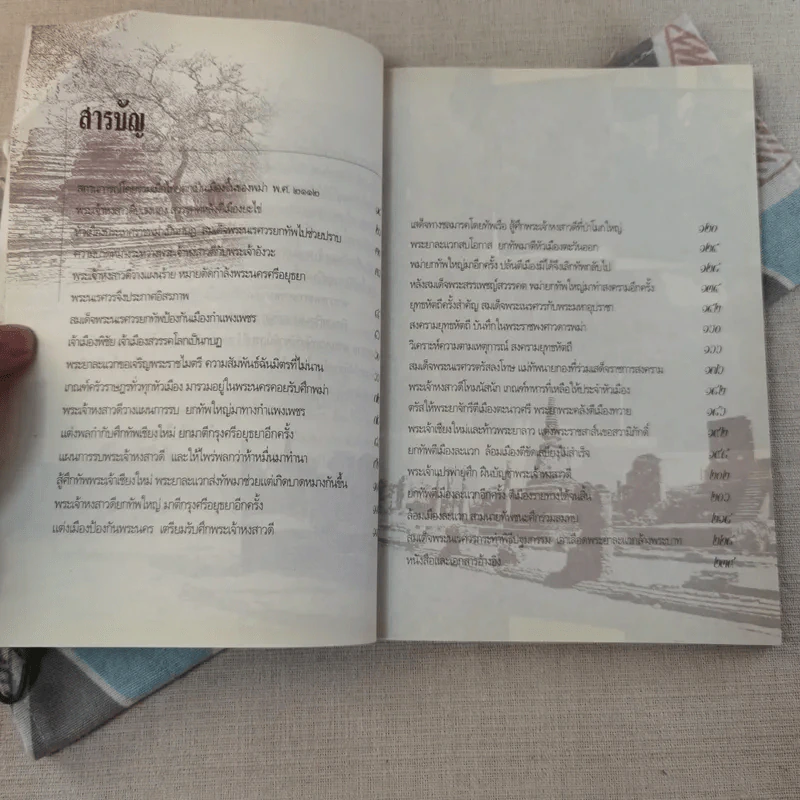 สารบัญ
สถานการณ์โดยรวมเมื่อไทยตกเป็นเมืองขึ้นของพม่า พ.ศ. ๒๑๑๒
พระเจ้าหงสาวดีบุเรงนอง สวรรคตหลังตีเมืองยะไข่
สมเด็จพระนเรศวรยกทัพไปช่วยปราบ
พระเจ้าหงสาวดีกับพระเจ้าอังวะ
พระเจ้าหงสาวดีวางแผนร้าย หมายตัดกำลังพระนครศรีอยุธยา
พระนเรศวรจึงประกาศอิสรภาพ
สมเด็จพระนเรศวรยกทัพป้องกันเมืองกำแพงเพชร
เจ้าเมืองพิชัย เจ้าเมืองสวรรคโลกเป็นกบฏ
พระยาละแวกขอเจริญพระราชไมตรี ความสัมพันธ์ฉันมิตรที่ไม่นาน
เกณฑ์ครัวราษฎรทั่วทุกหัวเมือง มารวมอยู่ในพระนครคอยรับศึกพม่า
พระเจ้าหงสาวดีวางแผนการรบ ยกทัพใหญ่มาทางกำแพงเพชร
แต่งพลกำกับศึกทัพเชียงใหม่ ยกมาตีกรุงศรีอยุธยาอีกครั้ง
แผนการรบพระเจ้าหงสาวดี และให้ไพร่พลกว่าห้าหมื่นมาทำนา
สู้ศึกทัพพระเจ้าเชียงใหม่ พระยาละแวกส่งทัพมาช่วยแต่เกิดบาดหมางกันขึ้น
พระเจ้าหงสาวดียกทัพใหญ่ มาตีกรุงศรีอยุธยาอีกครั้ง
แต่งเมืองป้องกันพระนคร เตรียมรับศึกพระเจ้าหงสาวดี
เสด็จทางชลมารคโดยทัพเรือ สู้ศึกพระเจ้าหงสาวดีที่ป่าโมกใหญ่ ๑๒๐
พระยาละแวกสบโอกาส ยกทัพมาตีหัวเมืองตะวันออก
พม่ายกทัพใหญ่มาอีกครั้ง ปล้นตีเมืองมิได้จึงเลิกทัพกลับไป
หลังสมเด็จพระสรรเพชญ์สวรรคต พม่ายกทัพใหญ่มาทำสงครามอีกครั้ง
ยุทธหัตถีครั้งสำคัญ สมเด็จพระนเรศวรกับพระมหาอุปราชา
สงครามยุทธหัตถี บันทึกในพระราชพงศาวดารพม่า
วิเคราะห์ความตามเหตุการณ์ สงครามยุทธหัตถี
สมเด็จพระนเรศวรตรัสลงโทษ แม่ทัพนายกองที่ร่วมเสด็จราชการสงคราม
พระเจ้าหงสาวดีโทมนัสนัก เกณฑ์ทหารที่เหลือให้ประจำหัวเมือง
ตรัสให้พระยาจักรีตีเมืองตะนาวศรี พระยาพระคลังตีเมืองทวาย
พระเจ้าเชียงใหม่และท้าวพระยาลาว แต่งพระราชสาส์นขอสวามิภักดิ์
ยกทัพตีเมืองละแวก ล้อมเมืองตีขัดเสบียงไม่สำเร็จ
พระเจ้าแปรพ่ายศึก ผินบัญชาพระเจ้าหงสาวดี
ยกทัพตีเมืองละแวกอีกครั้ง ตีเมืองรายทางได้จนสิ้น
ล้อมเมืองละแวก สามนายทัพชนะศึกร่วมสมทบ
สมเด็จพระนเรศวรกระทำพิธีปฐมกรรม เอาเลือดพระยาละแวกล้างพระบาท
หนังสือและเอกสารอ้างอิง